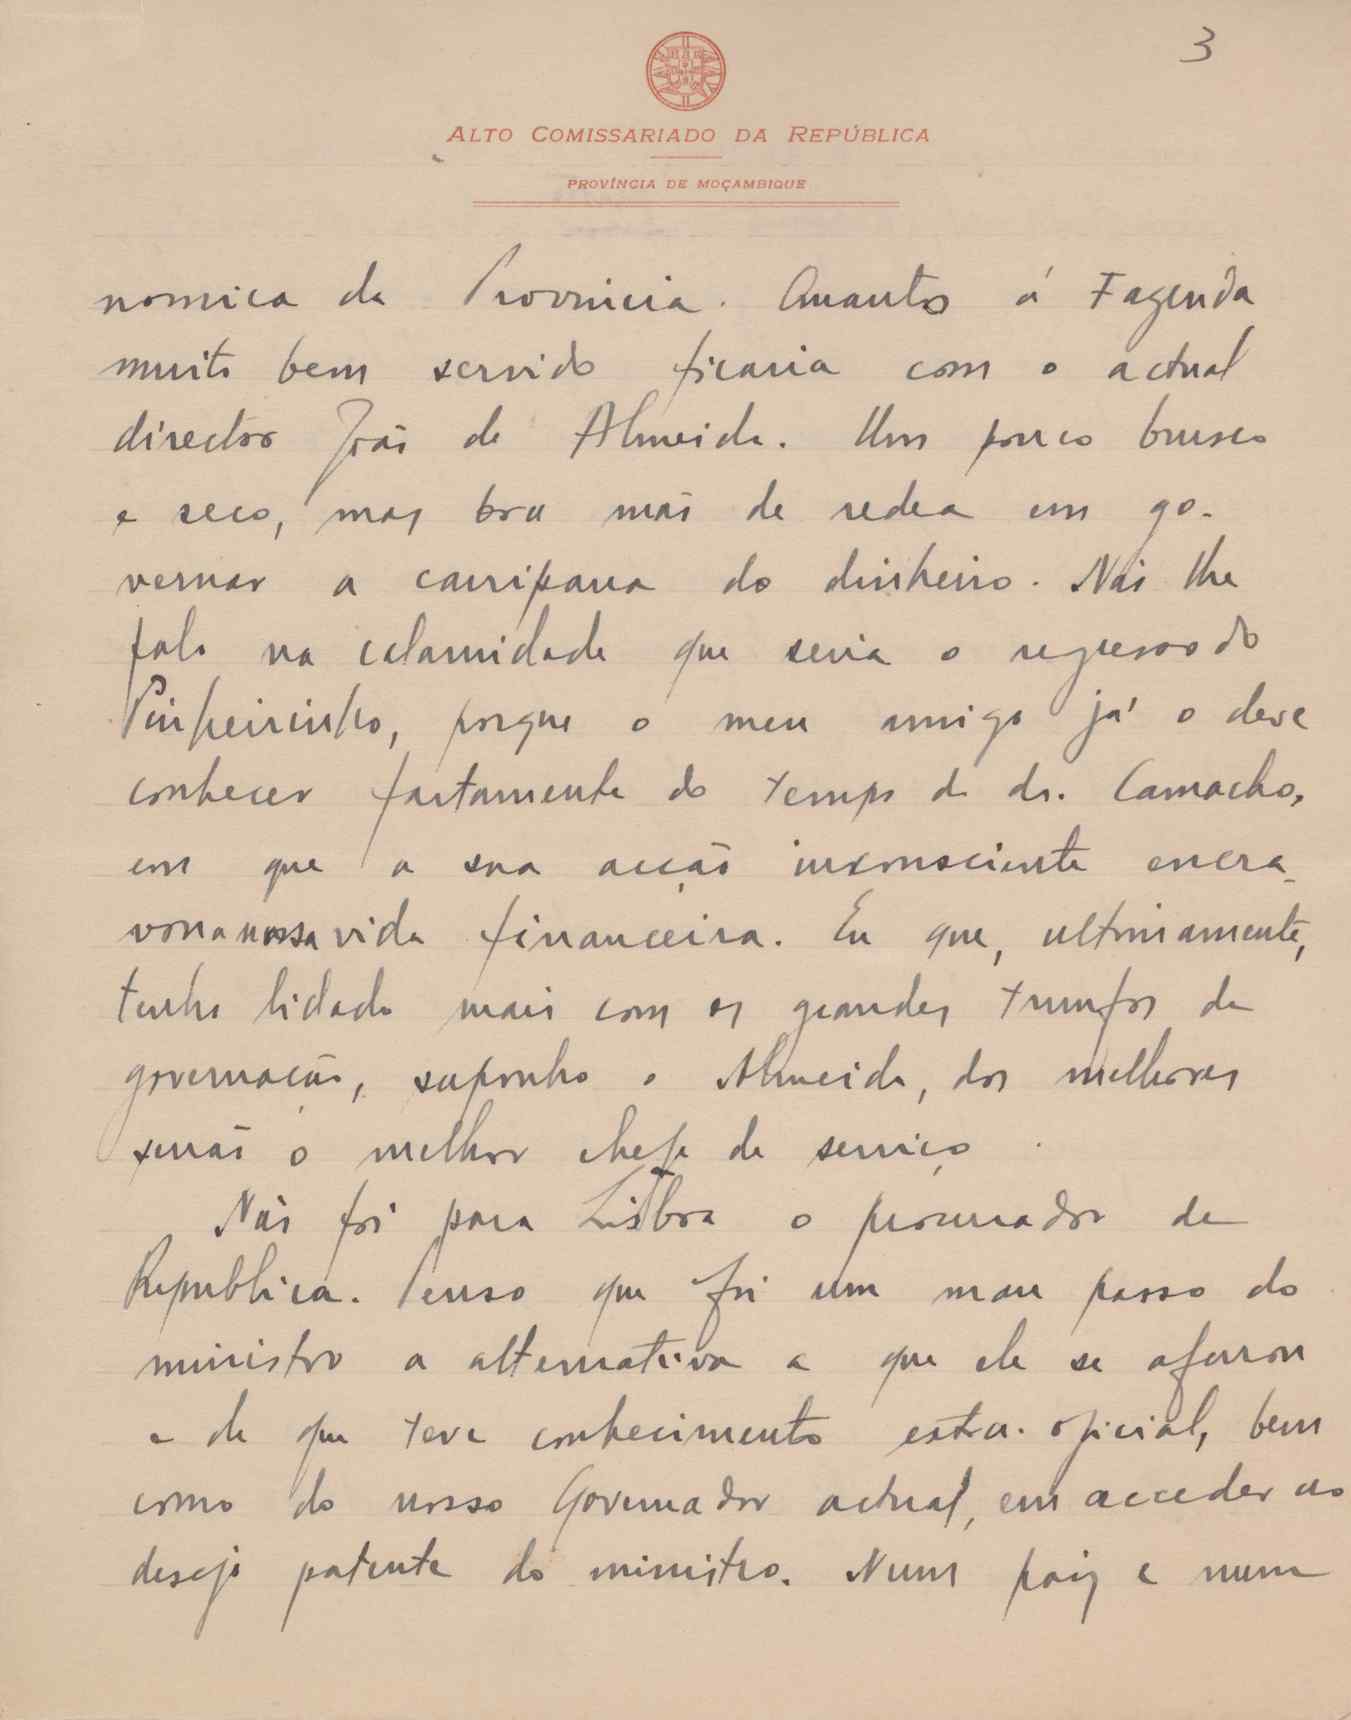 3
ALTO COMISSARIADO DA REPÚBLICA
PROVÍNCIA DE MOÇAMBIQUE
nomica da Provincia. Quanto á Fazenda
muito bem servido ficaria com o actual
director João de Almeida. Um pouco brusco
e seco, mas boa mão de redea em go-
vernar a carripana do dinheiro. Não lhe
falo na calamidade que seria o regresso do
Pinheirinho, porque o meu amigo já o deve
conhecer fartamente do tempo do dr. Camacho,
em que a sua acção inconsciente encra-
vou a nossa vida financeira. Eu que, ultimamente,
tenho lidado mais com os grandes trunfos da
governação, suponho o Almeida, dos melhores
senão o melhor chefe de serviço.
Não foi para Lisboa o procurador da
Republica. Penso que foi um mau passo do
ministro a alternativa a que ele se aferrou
e de que teve conhecimento extra-oficial, bem
como do nosso Governador actual, em acceder ao
desejo patente do ministro. Num paiz e numa